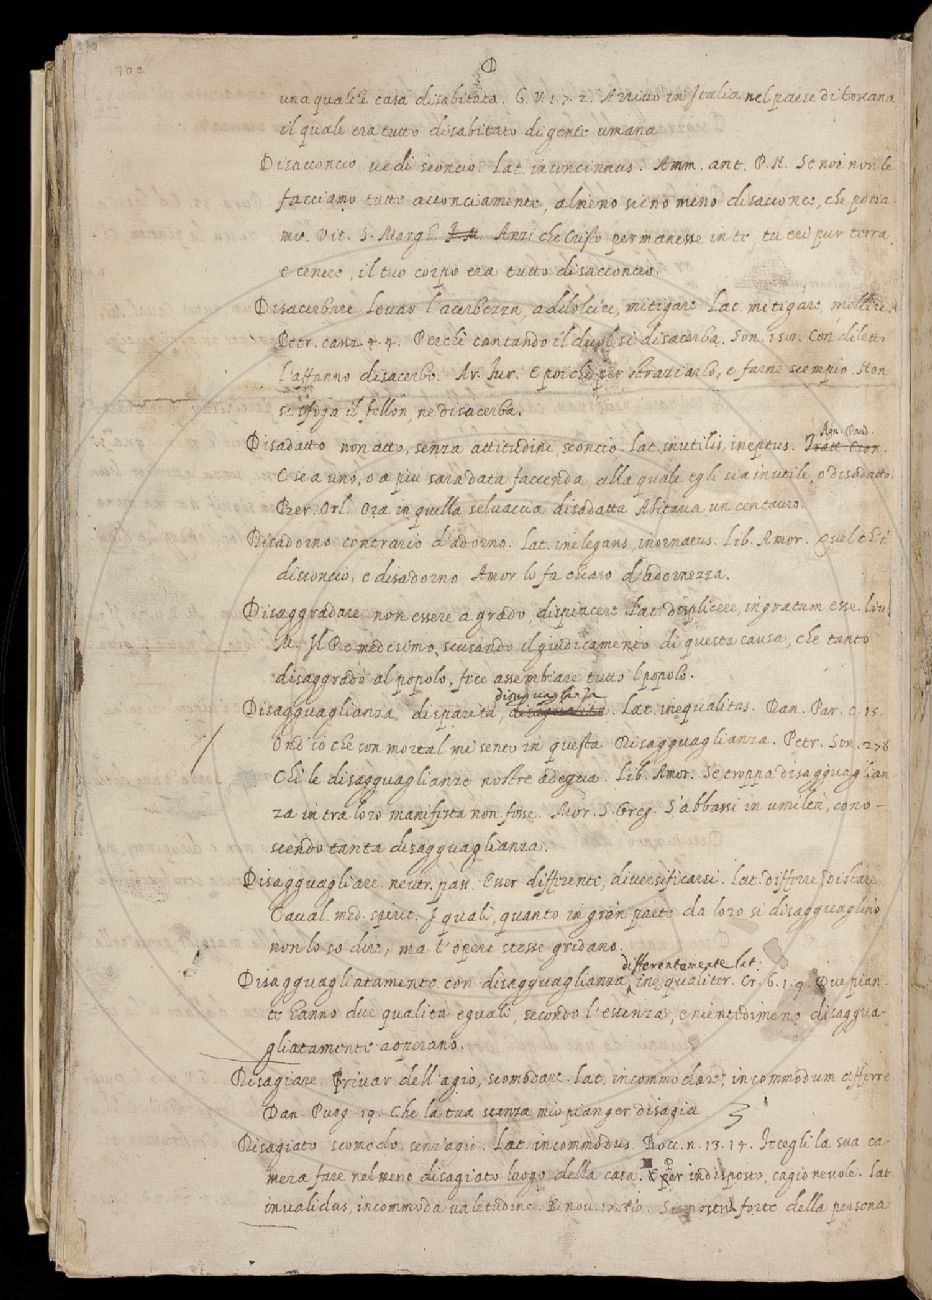 702
D
una qualche casa disabitata. G. V. 1. 7. 2. Arrivò in Italia nel paese di toscana,
il quale era tutto disabitato di gente umana
Disacconcio vedi sconcio. Lat. inconcinnus. Amm. ant. P. N. Se noi non le
facciamo tutte acconciamente, almeno sieno meno disacconce, che potia-
mo. Vit. S. Margh. Anzi che Cristo permanesse in te, tu eri pur terra,
e cenere, il tuo corpo era tutto disacconcio.
Disacerbare Levar l'acerbezza, addolcire, mitigare Lat. mitigare, mollire.
Petr. canz. 4. 4. Perchè cantando il duol si disacerba. Son. Con diletto
l'affanno disacerbo. Ar. Fur. E poi che per straziarlo, e farne scempio Non
si sfoga il fellon, ne disacerba.
Agn. Pand.
Disadatto non atto, senza attitudine, sconcio. Lat. inutilis, ineptus.
E se a uno, o a più sarà data faccenda, alla quale egli sia inutile, o disadatto.
Ber. Orl. Ora in quella selvaccia disadatta Abitava un centauro.
Disadorno contrario d'adorno. Lat. inelegans, inornatus. Lib. Amor. Quel ch'è
disconcio, e disadorno Amor lo fa chiaro d'adornezza.
Disaggradare non essere a grado, dispiacere Lat. displicere, ingratum esse. Liv.
M. Il Re medesimo, scusando il giudicamento di questa causa, che tanto
disaggradò al popolo, fece assembiare tutto 'l popolo.
disuguaglianza
Disagguaglianza, disparità, . Lat. inequalitas. Dan. Par. c. 15.
Ond'io che son mortal mi sento in questa Disagguaglianza. Petr. Son. 278
Chi le disagguaglianze nostre adegua. Lib. Amor. Se troppa disagguaglian-
za intra loro manifesta non fosse. Mor. S. Greg. S'abbassi in umiltà, cono-
scendo tanta disagguaglianza.
Disagguagliare neutr. pass. Esser differente, diversificarsi. Lat. differre, distare
Caval. med. spirit. I quali, quanto in gran parte da loro si disagguaglino
non lo so dire, ma l'opere stesse gridano.
differentemente lat.
Disagguagliatamente con disagguaglianza, inequaliter. Cr. 6. 1. 9. Due pian-
te hanno due qualità eguali, secondo l'essenza, e nientedimeno disaggua-
gliatamente adoperano.
Disagiare Privar dell'agio, scomodare. Lat. incommodare, incommodum afferre
Dan. Purg. 19. Che la tua stanza mio pianger disagia
Disagiato scomodo, senz'agio. Lat. incommodus. Bocc. n. 13. 14. Fecegli la sua ca-
mera fare nel meno disagiato luogo della casa. E per indisposto, cagionevole. Lat.
invalidus, incommoda valetudine. E nov. Si mostrò forte della persona